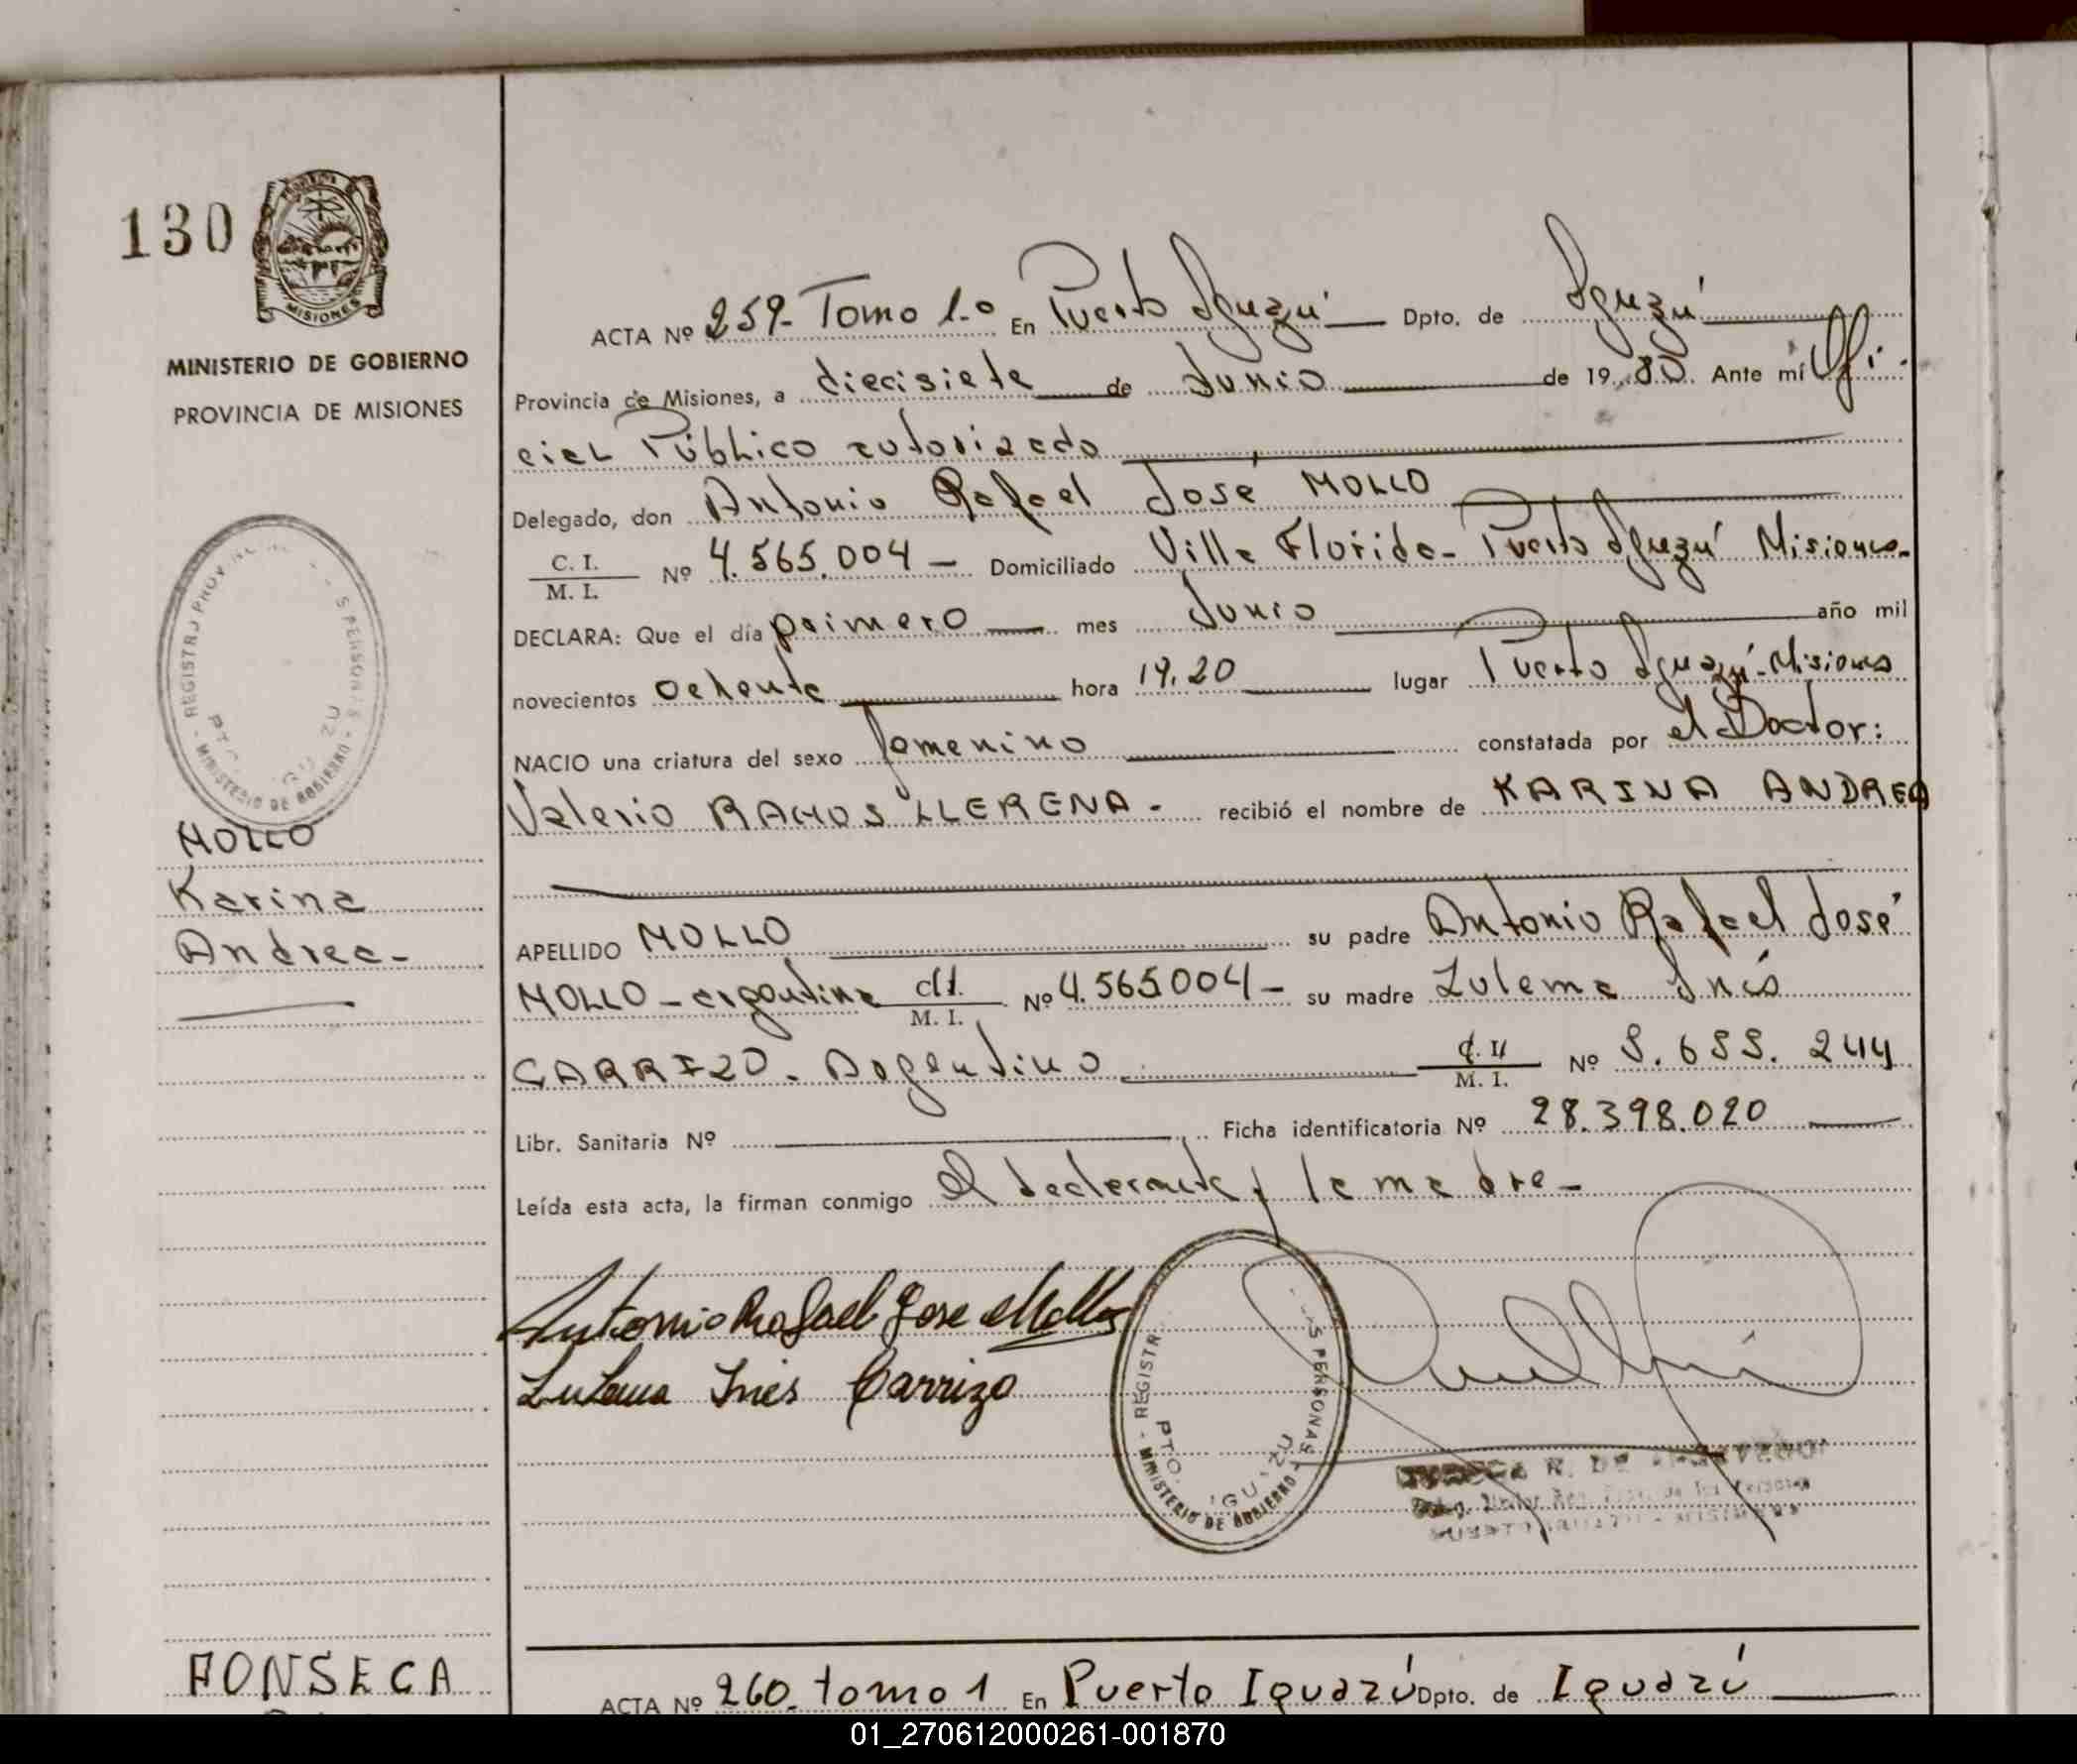 130
MISIONES
MINISTERIO DE GOBIERNO
PROVINCIA DE MISIONES
MOLLO
Karina
Andrea-
ACTA Nº 259- Tomo 1.º En Puerto Iguazú Dpto. de Iguazú
Provincia de Misiones, a diecisiete de Junio de 1980. Ante mí Ofi-
cial Público autorizado
Delegado, don Antonio Rafael José MOLLO
C. I.
M. I. Nº 4.565.004- Domiciliado Villa Florida- Puerto Iguazú Misiones-
DECLARA: Que el día primero mes Junio año mil
novecientos ochenta hora 19,20 lugar Puerto Iguazú-Misiones
NACIO una criatura del sexo femenino constatada por el Doctor:
Valerio RAMOS LLERENA- recibió el nombre de KARINA ANDREA
APELLIDO MOLLO su padre Antonio Rafael José
MOLLO-argentina M. I. Nº 4.565004- su madre Zulema Inés
CARRIZO. Argentino M. I. Nº 5.655.244
Libr. Sanitaria Nº Ficha identificatoria Nº 28.398.020
Leída esta acta, la firman conmigo el declarante y la madre-
Antonio Rafael Jose Mollo
Zulema Inés Carrizo
REGISTR PERSONAS
PTO. IGUAZU
MINISTERIO DE GOBIERNO
FONSECA
ACTA Nº 260 tomo 1 En Puerto Iguazú Dpto. de Iguazú
01_270612000261-001870